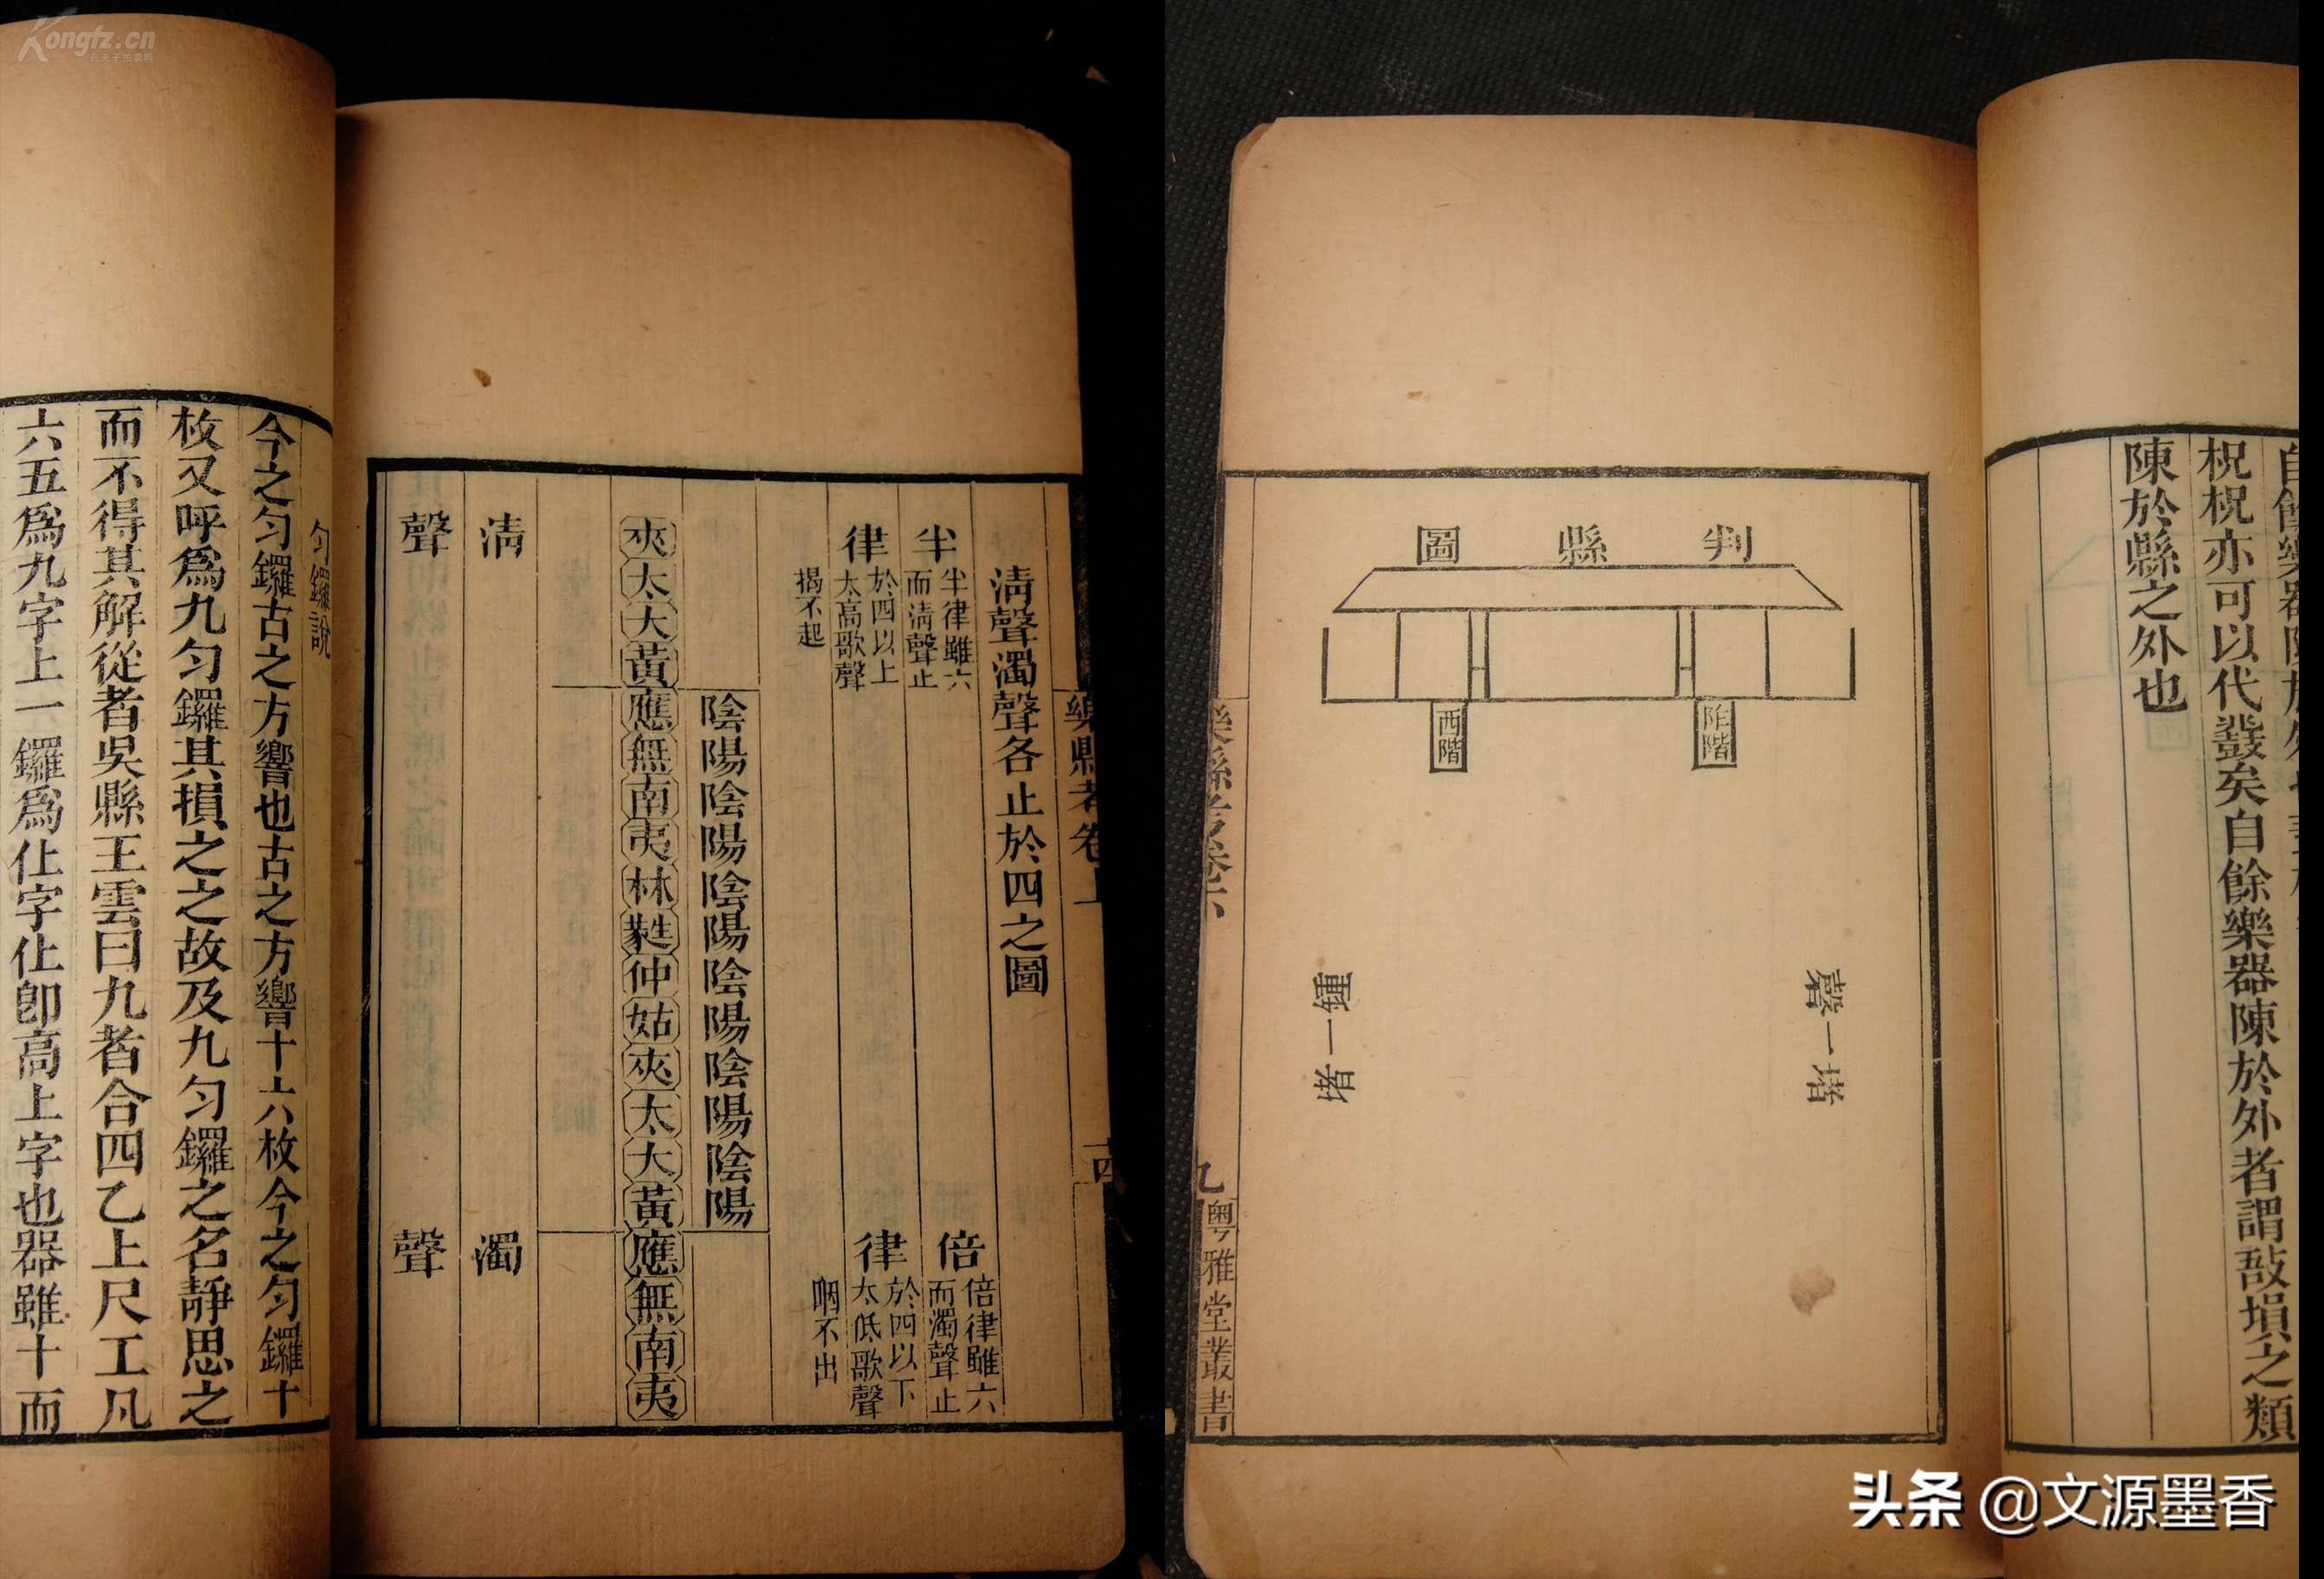 Kongfz.cn
孔夫子拍卖网
樂縣考卷上
十四
清聲濁聲各止於四之圖
半律
半律雖六
而清聲止
於四以上
太高歌聲
揭不起
倍律
倍律雖六
而濁聲止
於四以下
太低歌聲
咽不出
陰陽陰陽陰陽陰陽陰陽陰陽
夾太大黃應無南夷林蕤仲姑夾太大黃應無南夷
清濁
聲聲
勻鑼說
今之勻鑼古之方響也古之方響十六枚今之勻鑼十
枚又呼爲九勻鑼其損之之故及九勻鑼之名靜思之
而不得其解從者吳縣王雲曰九者合四乙上尺工凡
六五爲九字上一鑼爲仩字仩卽高上字也器雖十而
柷柷亦可以代鼗矣自餘樂器陳於外者謂敔塤之類
陳於縣之外也
判縣圖
阼階
西階
磬一堵
鍾一堵
樂縣考卷下
九
粵雅堂叢書
头条 @文源墨香